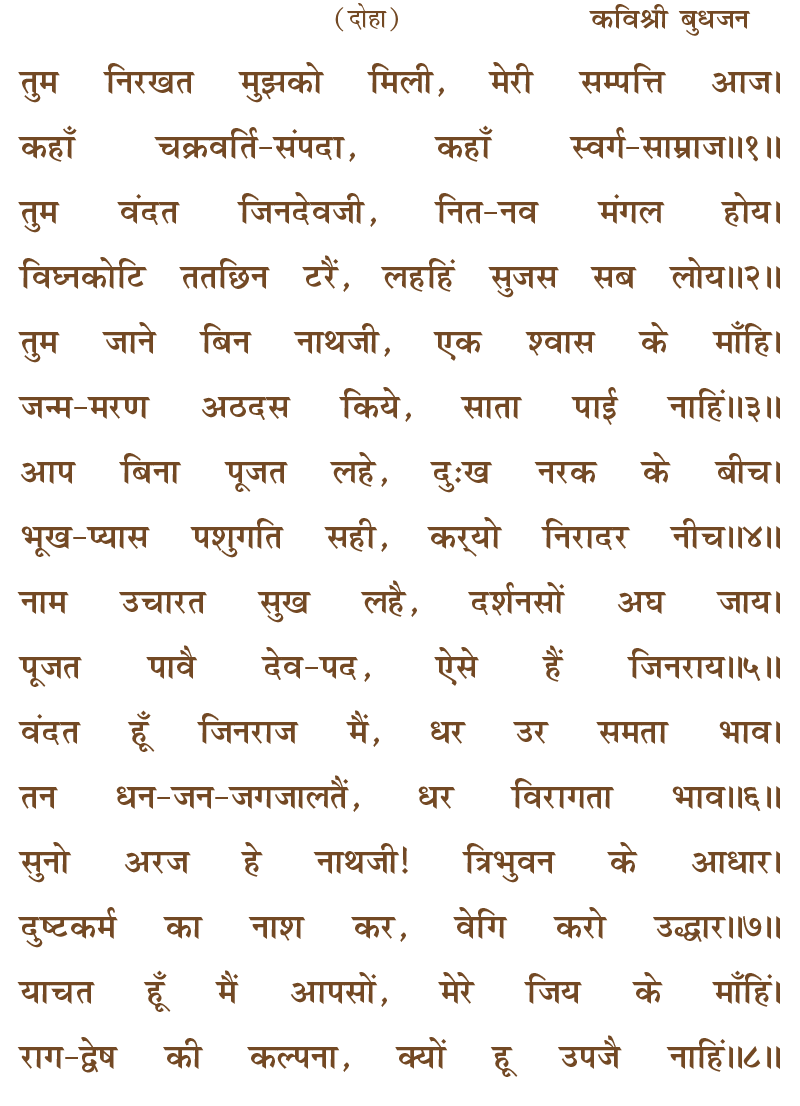 (दोहा) कविश्री बुधजन
तुम निरखत मुझको मिली, मेरी सम्पत्ति आज।
कहाँ चक्रवर्ति-संपदा, कहाँ स्वर्ग-साम्राज॥१॥
तुम वंदत जिनदेवजी, नित-नव मंगल होय।
विघ्नकोटि ततछिन टरैं, लहहिं सुजस सब लोय॥२॥
तुम जाने बिन नाथजी, एक श्वास के माँहि।
जन्म-मरण अठदस किये, साता पाई नाहिं॥३॥
आप बिना पूजत लहे, दुःख नरक के बीच।
भूख-प्यास पशुगति सही, कर्‌यो निरादर नीच॥४॥
नाम उचारत सुख लहै, दर्शनसों अघ जाय।
पूजत पावै देव-पद, ऐसे हैं जिनराय॥५॥
वंदत हूँ जिनराज मैं, धर उर समता भाव।
तन धन-जन-जगजालतैं, धर विरागता भाव॥६॥
सुनो अरज हे नाथजी! त्रिभुवन के आधार।
दुष्टकर्म का नाश कर, वेगि करो उद्धार॥७॥
याचत हूँ मैं आपसों, मेरे जिय के माँहिं।
राग-द्वेष की कल्पना, क्यों हू उपजै नाहिं॥८॥